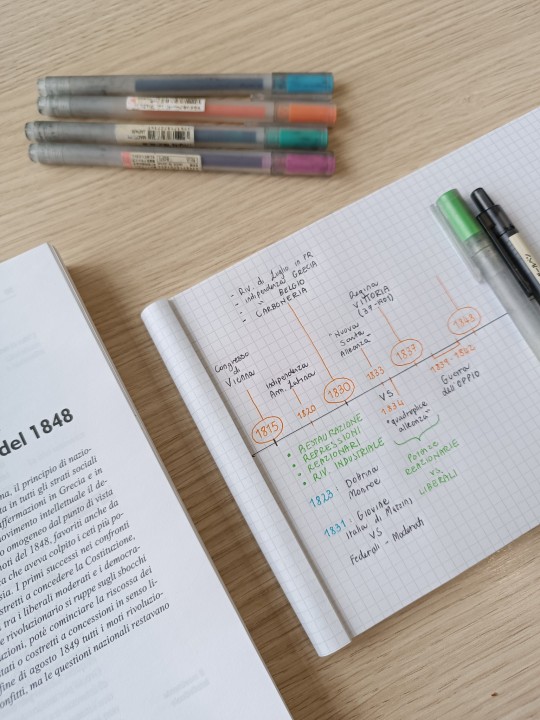 - Riv. di Luglio in FR
- indipendenza GRECIA
- " BELGIO
- CARBONERIA
Regina
VITTORIA
(37-1901)
"Nuova
Santa
Alleanza"
Congresso
di
Vienna
indipendenza
Am. Latina
1815
1820
1830
1833
1837
1848
VS
1834
"quadruplice
alleanza"
1839-1842
Guerra
dell'OPPIO
• RESTAURAZIONE
• REPRESSIONI
• REAZIONARI
• RIV. INDUSTRIALE
Potenze
REAZIONARIE
VS
LIBERALI
1823: Dottrina
Monroe
1831: Giovine
Italia di Mazzini
VS
Federali - Moderati
del 1848
na, il principio di nazio-
ta in tutti gli strati sociali
affermazioni in Grecia e in
movimento intellettuale il de-
o omogeneo dal punto di vista
moti del 1848, favoriti anche da
a che aveva colpito i ceti più po-
sia. I primi successi nei confronti
stretti a concedere la Costituzione,
tra i liberali moderati e i democra-
e rivoluzionario si ruppe sugli sbocchi
azioni, poté cominciare la riscossa dei
tati o costretti a concessioni in senso li-
fine di agosto 1849 tutti i moti rivoluzio-
onfitti, ma le questioni nazionali restavano